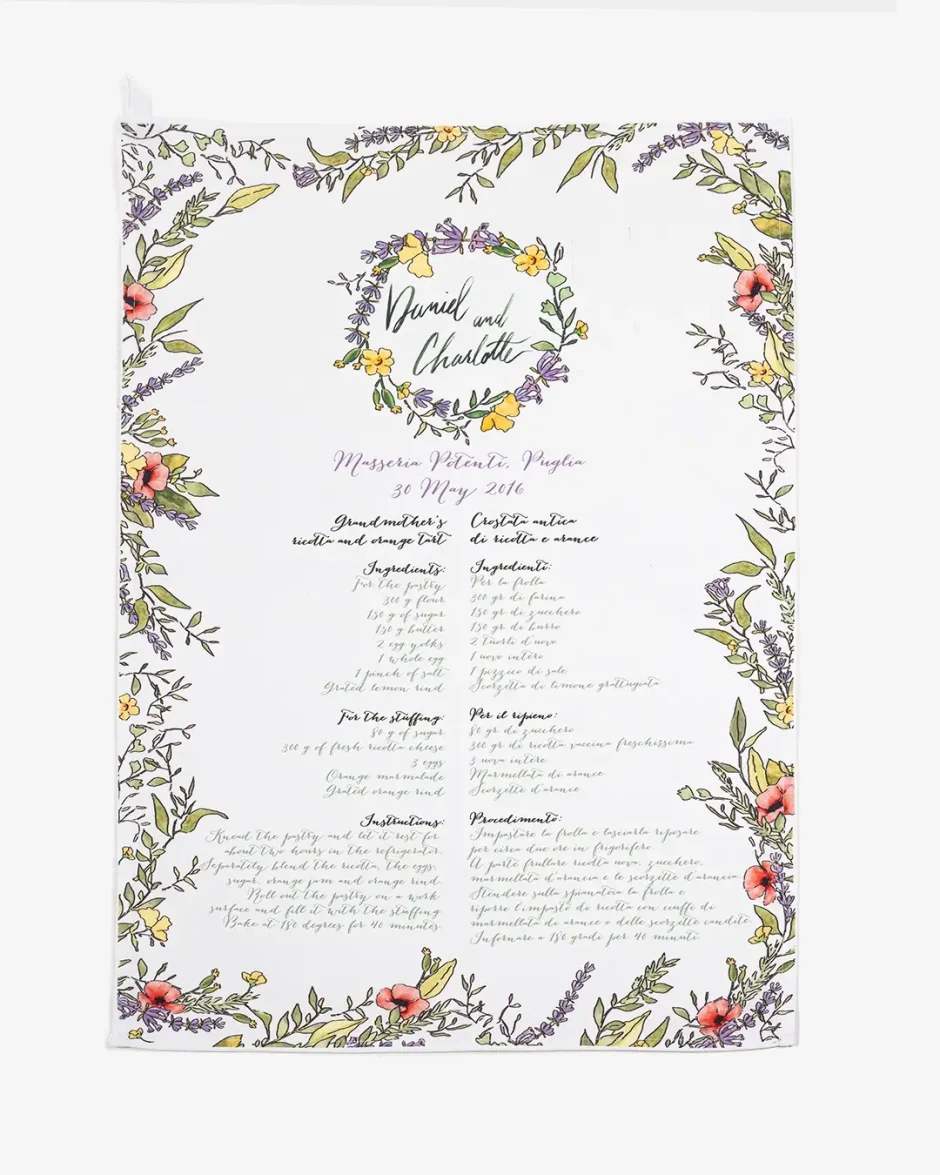 Daniel and
Charlotte
Masseria Potenti, Puglia
30 May 2016
Grandmother's
ricotta and orange tart
Ingredients:
For the pastry
300 g flour
150 g of sugar
150 g butter
2 egg yolks
1 whole egg
1 pinch of salt
Grated lemon rind
For the stuffing:
80 g of sugar
300 g of fresh ricotta cheese
3 eggs
Orange marmalade
Grated orange rind
Instructions:
Knead the pastry and let it rest for
about two hours in the refrigerator.
Separately, blend the ricotta, the eggs,
sugar, orange jam and orange rind.
Roll out the pastry on a work
surface and fill it with the stuffing
Bake at 180 degrees for 40 minutes.
Crostata antica
di ricotta e arance
Ingredienti:
Per la frolla
300 gr di farina
150 gr di zucchero
150 gr di burro
2 tuorli d'uovo
1 uovo intero
1 pizzico di sale
Scorzetta di limone grattugiata
Per il ripieno:
80 gr di zucchero
300 gr di ricotta vaccina freschissima
3 uova intere
Marmellata di arance
Scorzette d'arance
Procedimento:
Impastare la frolla e lasciarla riposare
per circa due ore in frigorifero.
A parte frullare ricotta uova, zucchero,
marmellata d'arancia e le scorzette d'arancia.
Stendere sulla spianatoia la frolla e
riporre l'impasto di ricotta con ciuffi di
marmellata di arance e delle scorzette candite.
Infornare a 180 gradi per 40 minuti.